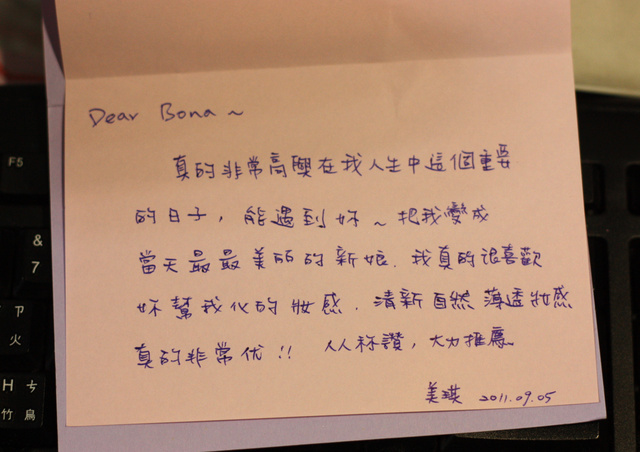 Dear Bona～
真的非常高興在我人生中這個重要
的日子，能遇到妳～把我變成
當天最最美丽的新娘．我真的很喜歡
妳幫我化的妝感．清新自然薄透妝感
真的非常优!! 人人称讚，大力推薦
美琪 2011.09.05
F5
&
7
ㄗ
火
H ㄘ
竹 鳥